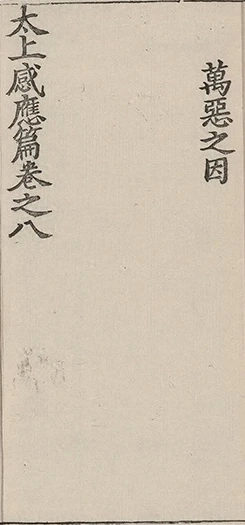 萬惡之因
太上感應篇卷之八